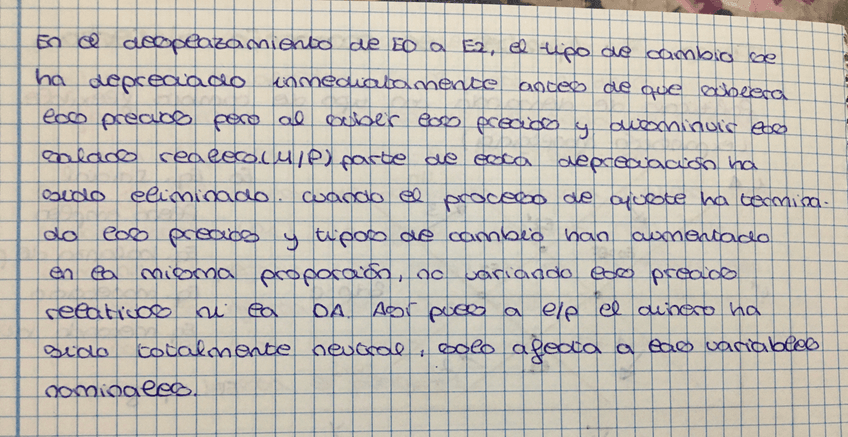 En el desplazamiento de E0 a E2, el tipo de cambio se
ha depreciado inmediatamente antes de que subiera
los precios pero al subir los precios y disminuir los
saldos reales (M/P) parte de esta depreciación ha
sido eliminado. Cuando el proceso de ajuste ha termina-
do los precios y tipos de cambio han aumentado
en la misma proporción, no variando los precios
relativos ni la DA. Así pues a l/p el dinero ha
sido totalmente neutral, solo afecta a las variables
nominales.